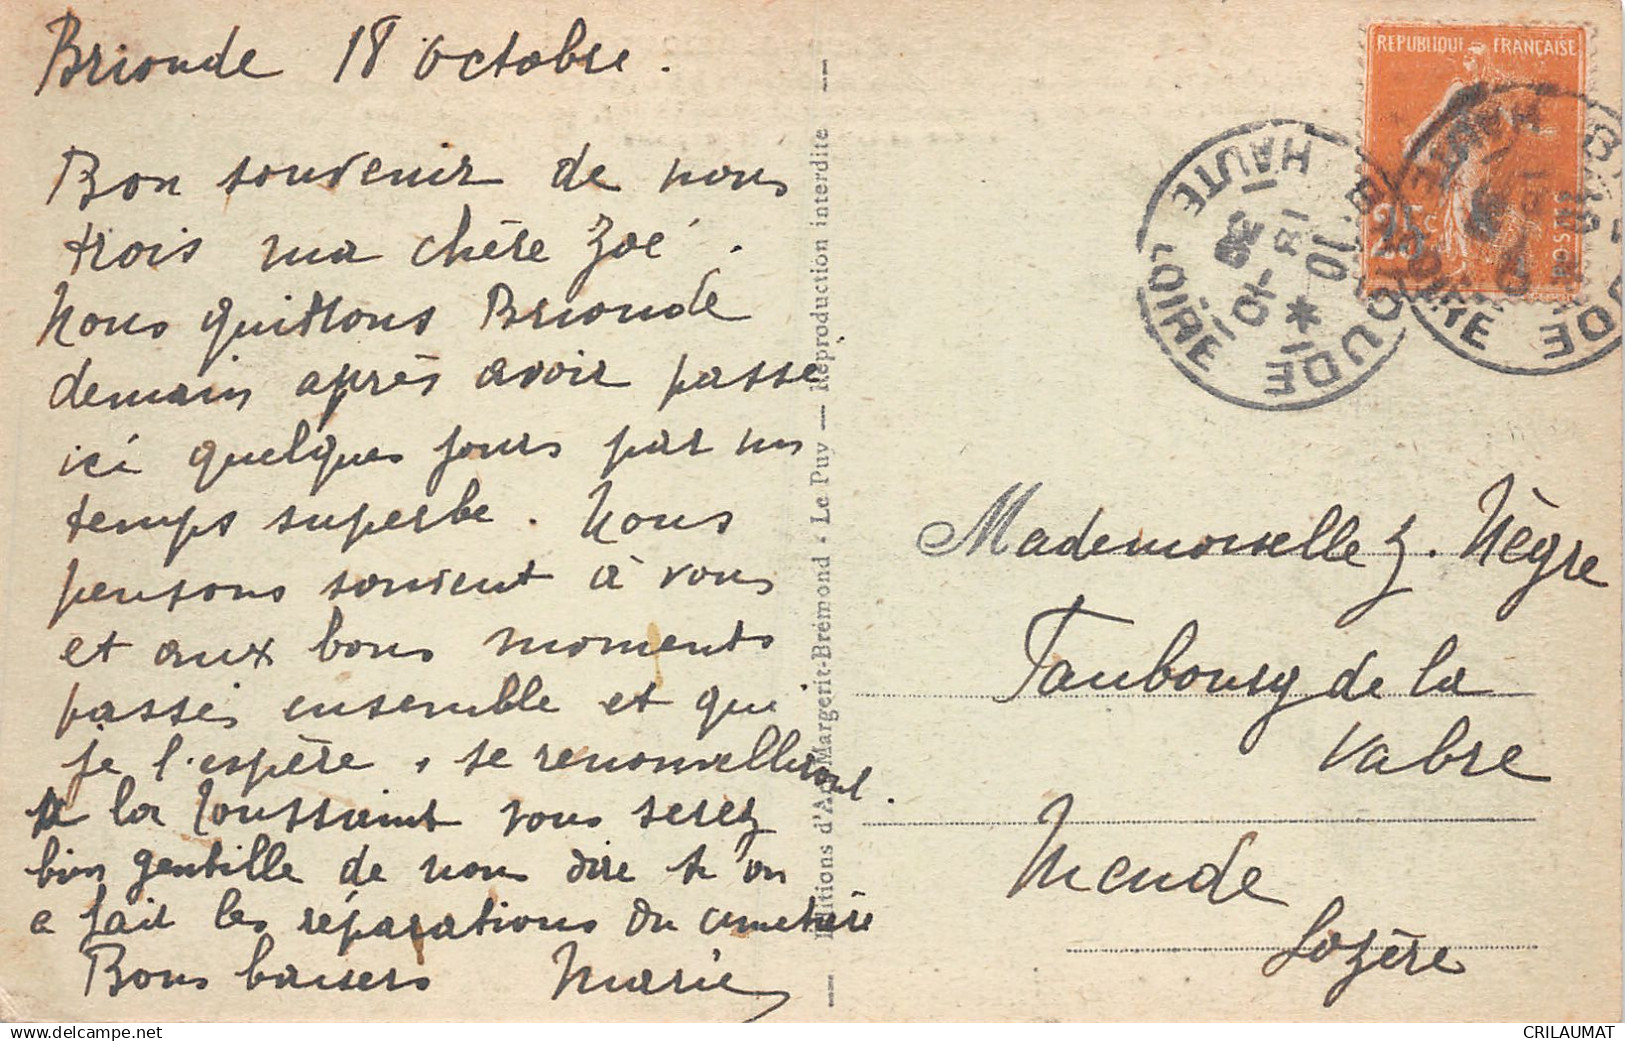 Brioude 18 octobre.
Bon souvenir de nous
trois ma chère Zoé.
Nous quittons Brioude
demain après avoir passé
ici quelques jours par un
temps superbe. Nous
pensons souvent à vous
et aux bons moments
passés ensemble et qui
je l'espère, se renouvelleront.
A la Toussaint vous serez
bien gentille de nous dire si on
a fait les réparations du cimetière
Bons baisers Marie
Editions d'Art Margerit-Brémond - Le Puy — Reproduction interdite
REPUBLIQUE FRANÇAISE
25c
POSTES
BRIOUDE
HAUTE LOIRE
18
10
38
BRIOUDE
HAUTE LOIRE
Mademoiselle Z. Nègre
Faubourg de la
Vabre
Mende
Lozère
www.delcampe.net
CRILAUMAT